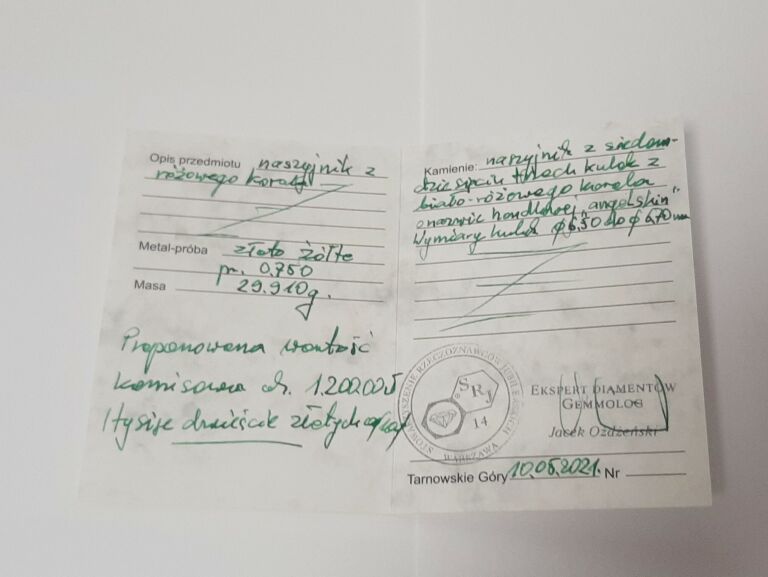 Opis przedmiotu naszyjnik z
różowego korala
Metal-próba złoto żółte
pr. 0.750
Masa 29.910g.
Proponowana wartość
komisowa ok. 1.200.00
1 tysiąc dwieście złotych
Kamienie: naszyjnik z siedem-
dziesięciu trzech kulek z
biało-różowego korala
o nazwie handlowej "angelskin"
Wymiary kulek φ 6,50 do φ 6,70 mm
STOWARZYSZENIE RZECZOZNAWCÓW JUBILERSKICH
WARSZAWA
SRJ
14
EKSPERT DIAMENTÓW
GEMMOLOG
Jacek Ożdżeński
Tarnowskie Góry 10.05.2021. Nr